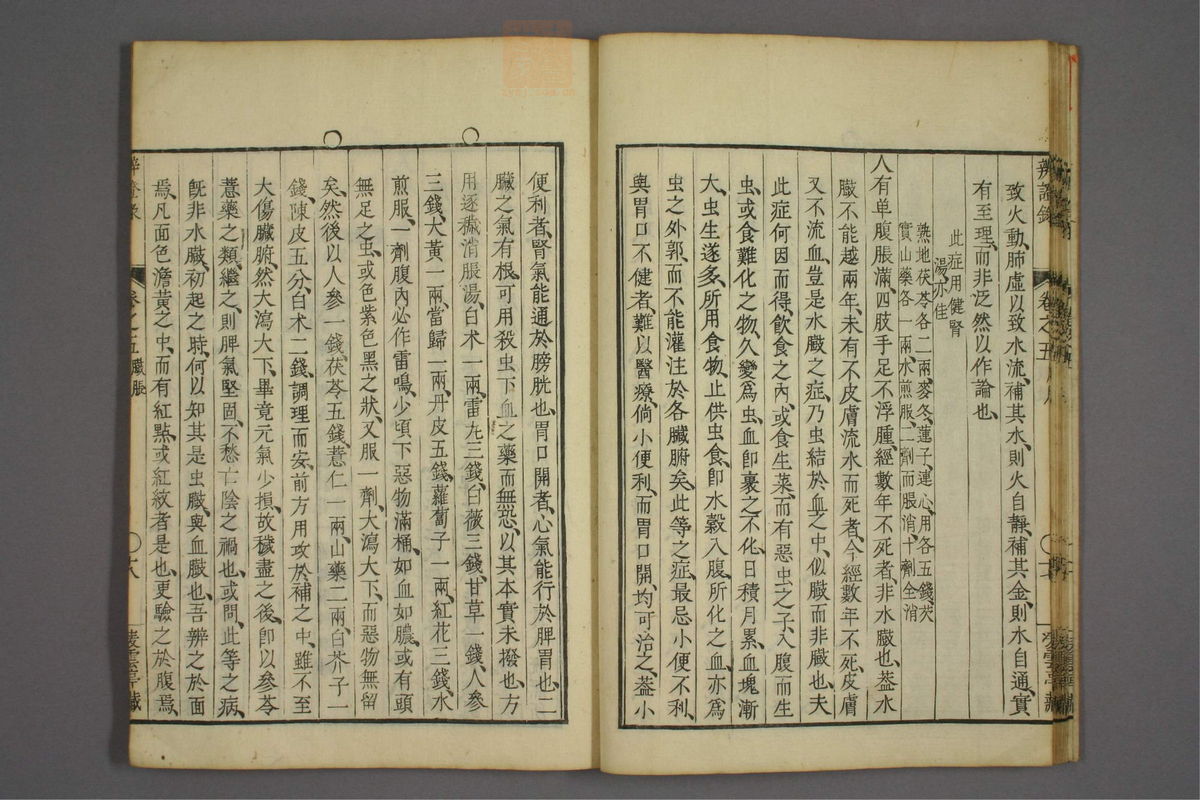 辨證錄
卷之五
凌雲亭藏
致火動肺虛以致水流補其水則火自靜補其金則水自通實
有至理而非泛然以作論也
此症用健腎
湯亦佳
熟地茯苓各二兩麥冬蓮子連心用各五錢芡
實山藥各一兩水煎服二劑而脹消十劑全消
人有单腹脹滿四肢手足不浮腫經數年不死者非水臌也葢水
臌不能越兩年未有不皮膚流水而死者今經數年不死皮膚
又不流血豈是水臌之症乃虫結於血之中似臌而非臌也夫
此症何因而得飲食之內或食生菜而有惡虫之子入腹而生
虫或食難化之物久變爲虫血卽裹之不化日積月累血塊漸
大虫生遂多所用食物止供虫食卽水穀入腹所化之血亦爲
虫之外郭而不能灌注於各臟腑矣此等之症最忌小便不利
與胃口不健者難以醫療倘小便利而胃口開均可治之葢小
便利者腎氣能通於膀胱也胃口開者心氣能行於脾胃也二
臟之氣有根可用殺虫下血之藥而無恐以其本實未撥也方
用逐穢消脹湯白术一兩雷丸三錢白薇三錢甘草一錢人參
三錢大黃一兩當歸一兩丹皮五錢蘿蔔子一兩紅花三錢水
煎服一劑腹內必作雷鳴少頃下惡物滿桶如血如膿或有頭
無足之虫或色紫色黑之狀又服一劑大瀉大下而惡物無留
矣然後以人參一錢茯苓五錢薏仁一兩山藥二兩白芥子一
錢陳皮五分白术二錢調理而安前方用攻於補之中雖不至
大傷臟腑然大瀉大下畢竟元氣少損故穢盡之後卽以參苓
薏藥之類繼之則脾氣堅固不愁亡陰之禍也或問此等之病
旣非水臌初起之時何以知其是虫臌與血臌也吾辨之於面
焉凡面色澹黃之中而有紅點或紅紋者是也更驗之於腹焉
卷之五臌脹
凌雲亭藏